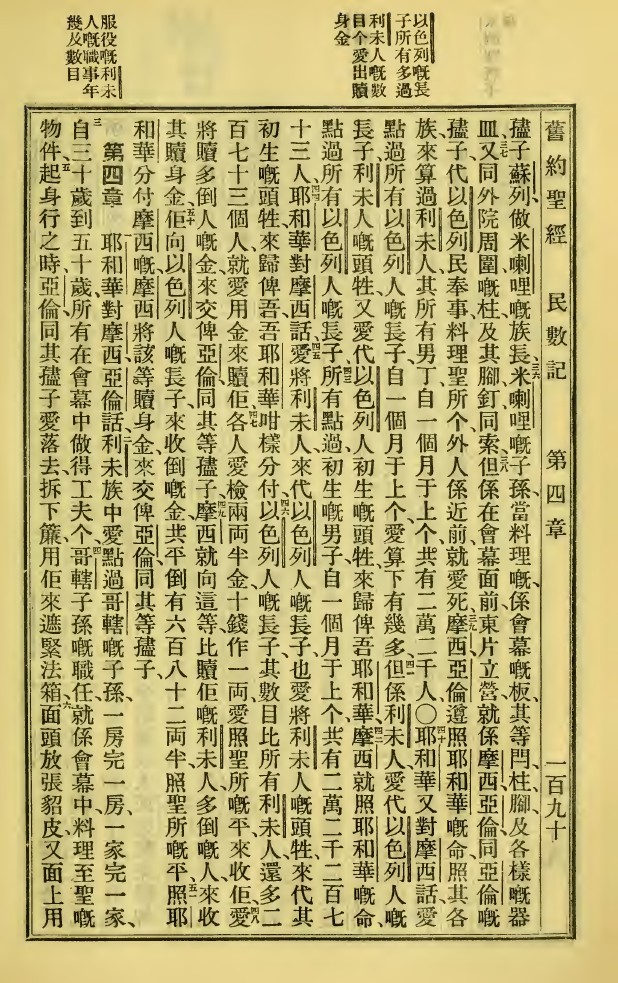 以色列嘅長
子所有多過
利未人嘅數
目个愛出贖
身金
服役嘅利未
人嘅職事年
幾及數目
舊約聖經 民數記 第四章 一百九十
孻子蘇列做米喇哩嘅族長、三六米喇哩嘅子孫、當料理嘅、係會幕嘅板、其等閂、柱、腳、及各樣嘅器
皿、三七又同外院周圍嘅柱、及其腳釘同索、三八但係在會幕面前東片立營、就係摩西亞倫同亞倫嘅
孻子、代以色列民奉事料理聖所、个外人係近前就愛死、三九摩西亞倫遵照耶和華嘅命、照其各
族來算過利未人、其所有男丁、自一個月于上个、共有二萬二千人、〇四十耶和華又對摩西話、愛
點過所有以色列人嘅長子、自一個月于上个、愛算下有幾多、四一但係利未人愛代以色列人嘅
長子、利未人嘅頭牲又愛代以色列人初生嘅頭牲、來歸俾吾耶和華、四二摩西就照耶和華嘅命、
點過所有以色列人嘅長子、四三所有點過初生嘅男子、自一個月于上个、共有二萬二千二百七
十三人、四四耶和華對摩西話、四五愛將利未人來代以色列人嘅長子、也愛將利未人嘅頭牲、來代其
初生嘅頭牲、來歸俾吾、吾耶和華咁樣分付、四六以色列人嘅長子、其數目比所有利未人、還多二
百七十三個人、就愛用金來贖佢、四七各人愛檢兩両半金、十錢作一両、愛照聖所嘅平來收佢、四八愛
將贖多倒人嘅金來交俾亞倫同其等孻子、四九摩西就向這等比贖佢嘅利未人多倒嘅人、來收
其贖身金、五十佢向以色列人嘅長子、來收倒嘅金、共平倒有六百八十二両半、照聖所嘅平、五一照耶
和華分付摩西嘅、摩西將該等贖身金來交俾亞倫同其等孻子、
第四章 耶和華對摩西亞倫話、二利未族中、愛點過哥轄嘅子孫、一房完一房、一家完一家、
三自三十歲到五十歲、所有在會幕中做得工夫个、四哥轄子孫嘅職任、就係會幕中料理至聖嘅
物件、五起身行之時、亞倫同其孻子愛落去、拆下簾、用佢來遮緊法箱、六面頭放張貂皮、又面上用